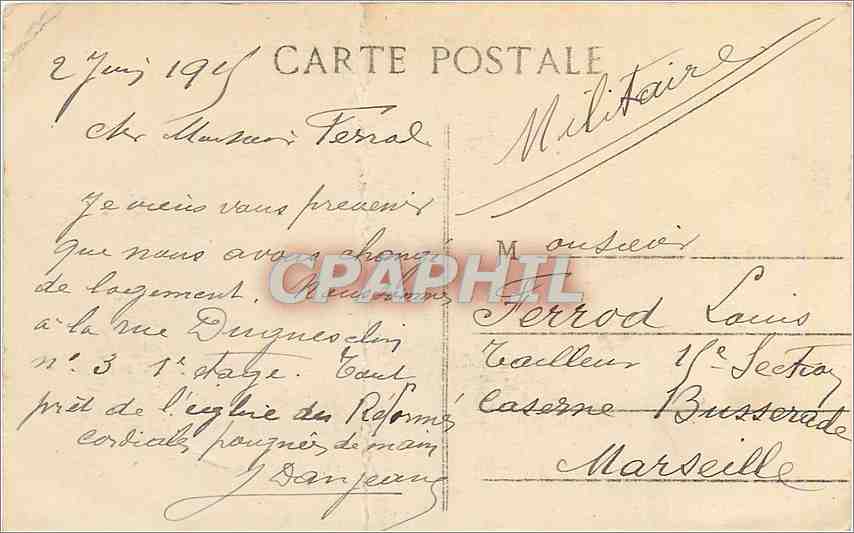 CARTE POSTALE
2 Juin 1915
Militaire
cher Monsieur Ferrod
Je viens vous prevenir
que nous avons changé
de logement. Nous sommes
à la rue Duguesclin
n° 3 1er etage. Tout
prêt de l'église des Réformés
cordiales poignées de main
J Danjean
Monsieur
Ferrod Louis
Tailleur 15e Section
Caserne Busserade
Marseille
CPAPHIL